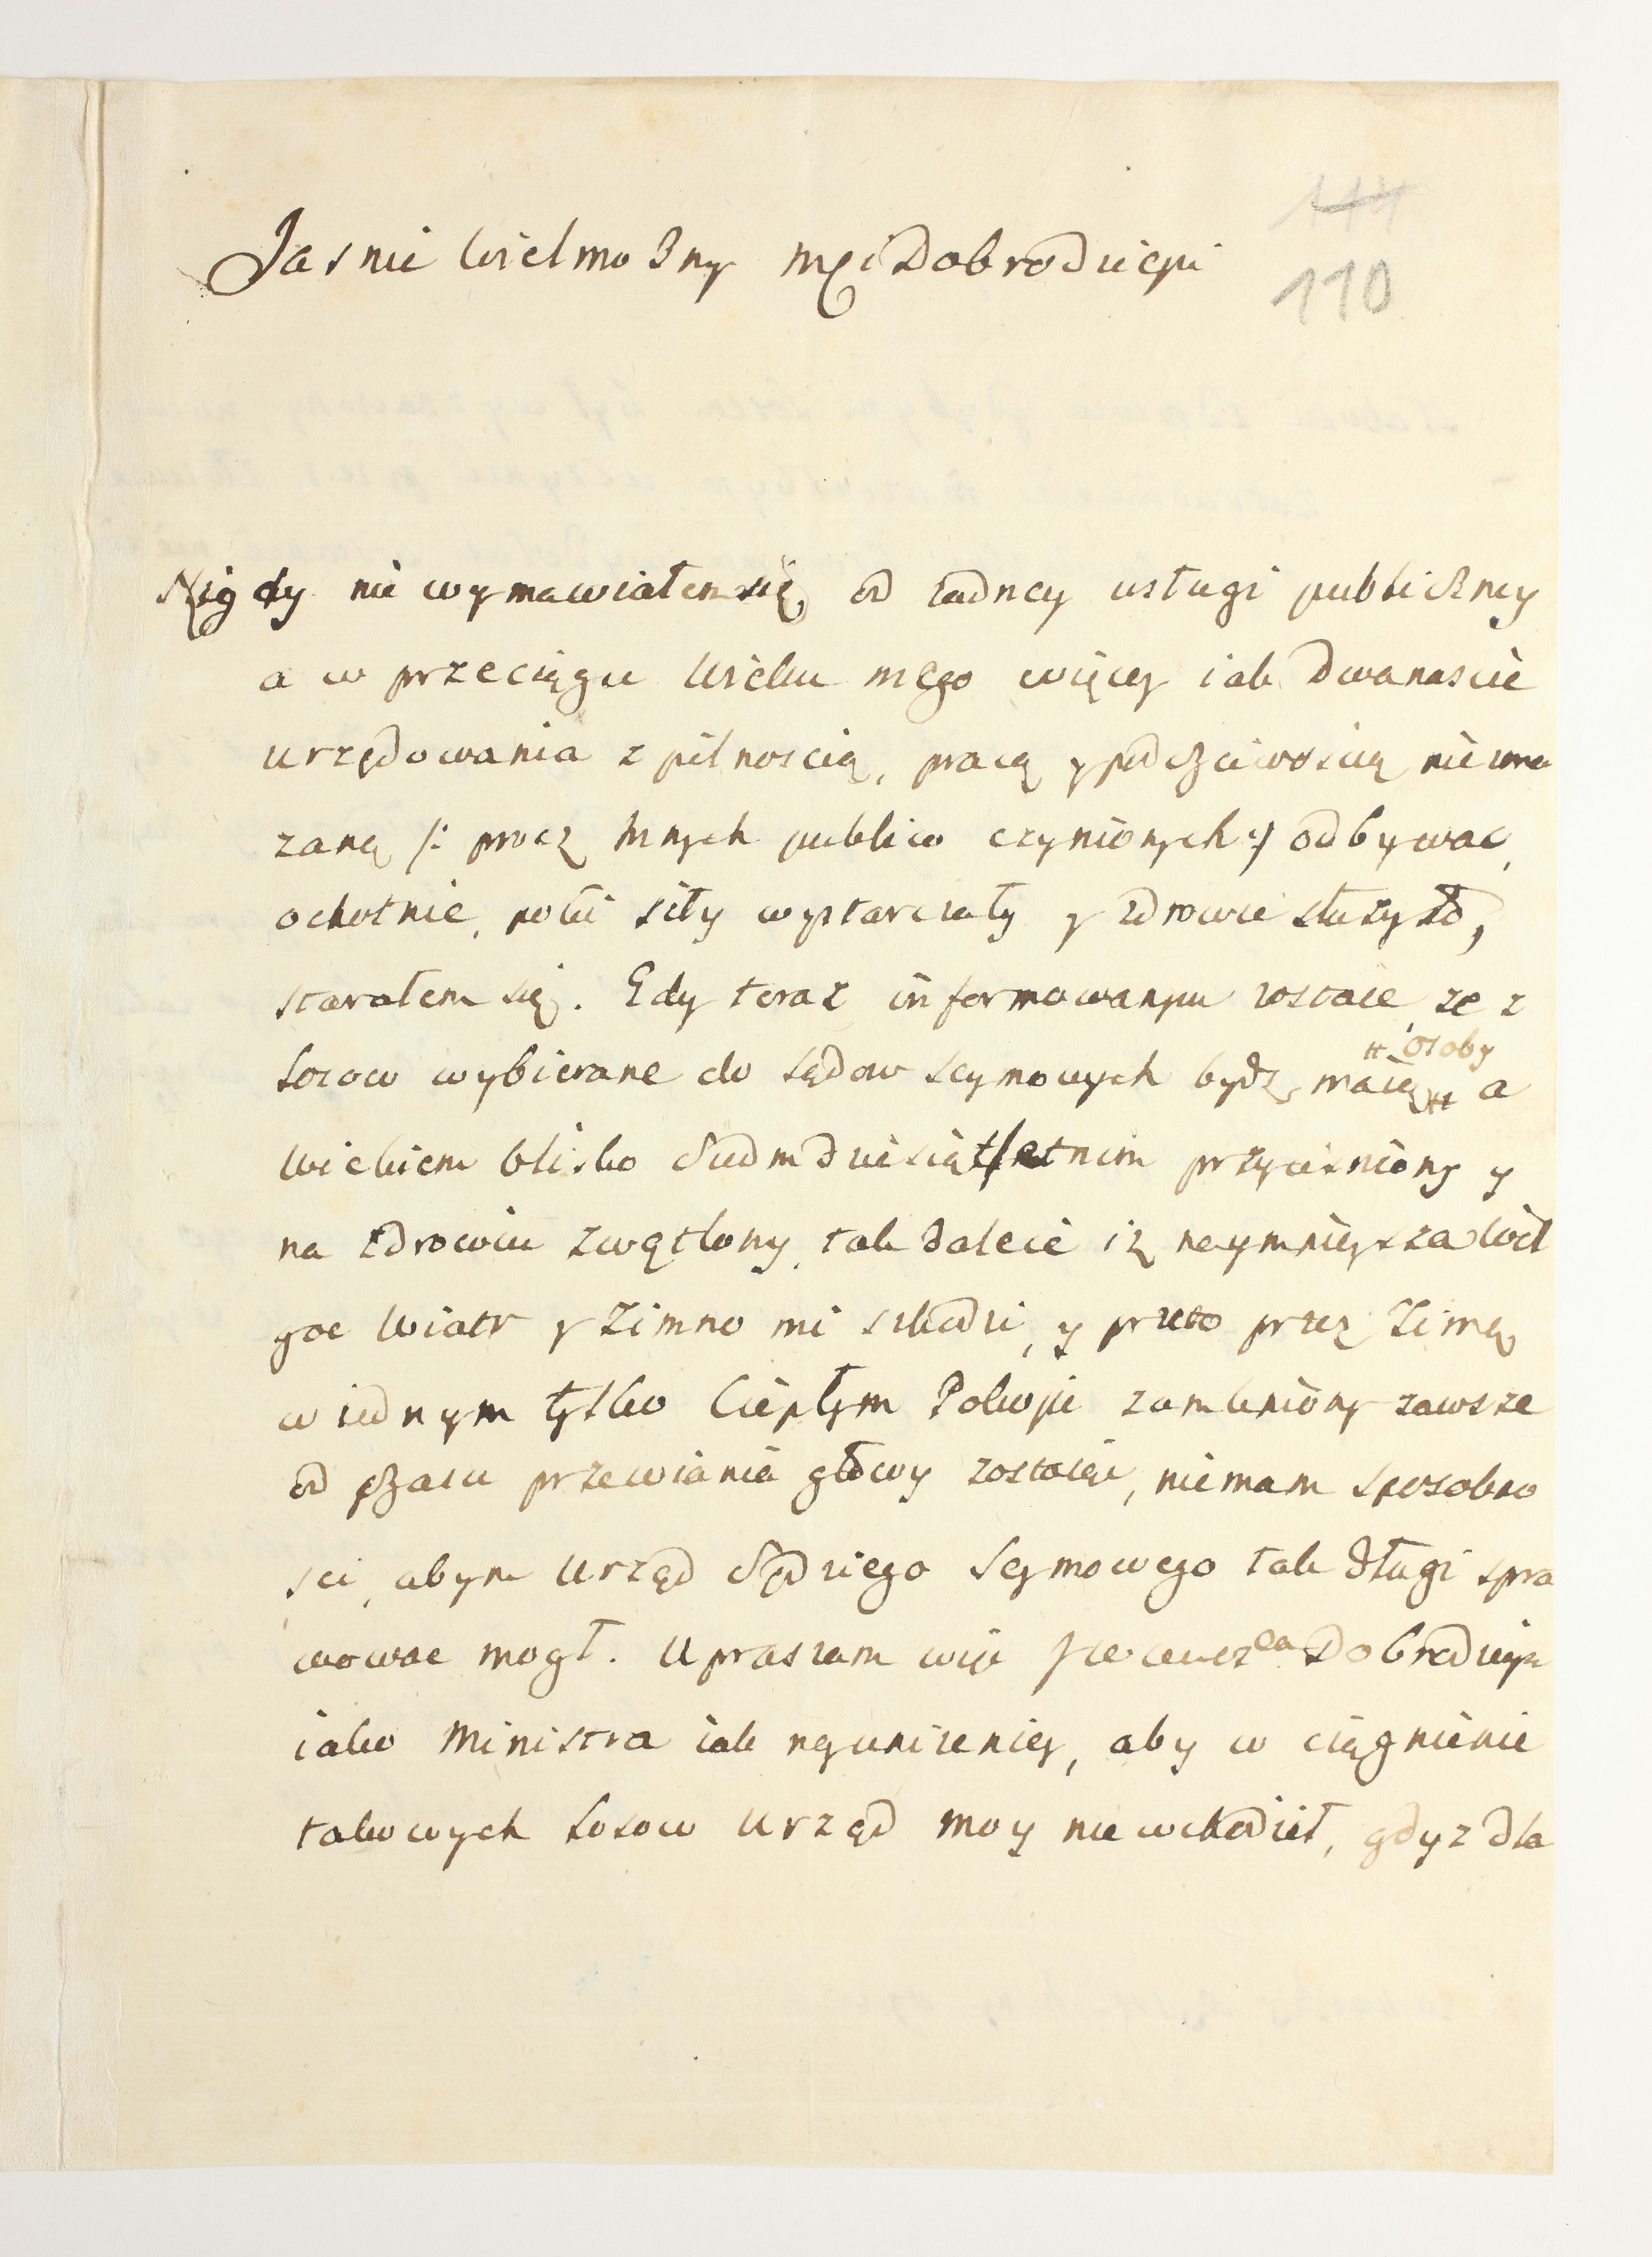 114
110
Jasnie Wielmożny Mci Dobrodzieju
Nigdy nie wymawiałem się od zadney usługi publiczney
a w przeciągu wieku mego więcey iak dwanascie
urzędowania z pilnoscią, pracą y podczciwoscią nie
zaną /: procz innych publico czynionych :/ odbywac,
ochotnie, poki siły wystarczały y zdrowie służyło,
starałem się. Gdy teraz informowanym zostaie, że z
Losow wybierane do sądow seymowych bydz maią # a
# osoby
wiekiem blisko siedmdziesiątletnim przycisniony y
na zdrowiu zwątlony, tak dalece iż naymnieysza wil
goc wiatr y zimno mi szkodzi, y przeto przez zimę
w iednym tylko Ciepłym Pokoju zamkniony zawsze
od czasu przewiania głowy zostaię, niemam sposobno
sci, abym urząd Sędziego Seymowego tak długi spra
wowac mogł. Upraszam więc Dobrodzieja
iako Ministra iak nayunizeniey, aby w ciągnienie
takowych Losow Urząd moy nie wchodził, gdyz dla